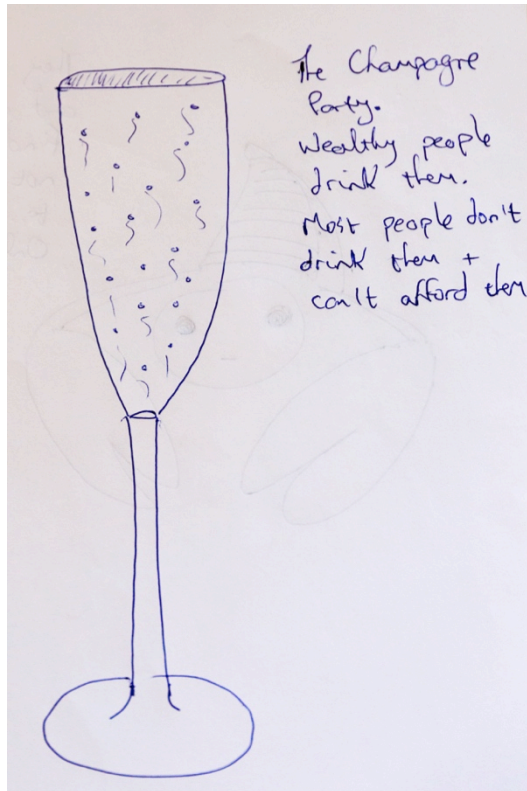 The Champagne
Party.
Wealthy people
drink them.
Most people don't
drink them +
can't afford them